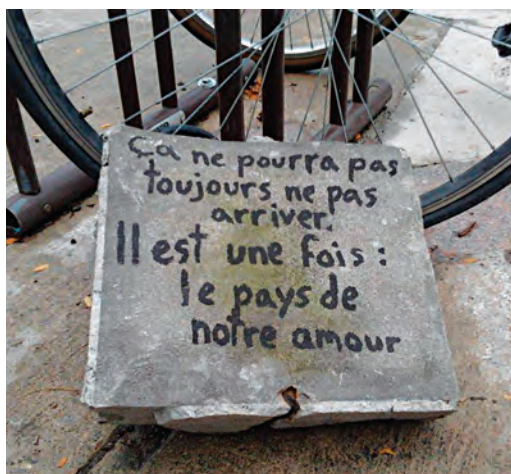 Ça ne pourra pas
toujours ne pas
arriver.
Il est une fois :
le pays de
notre amour